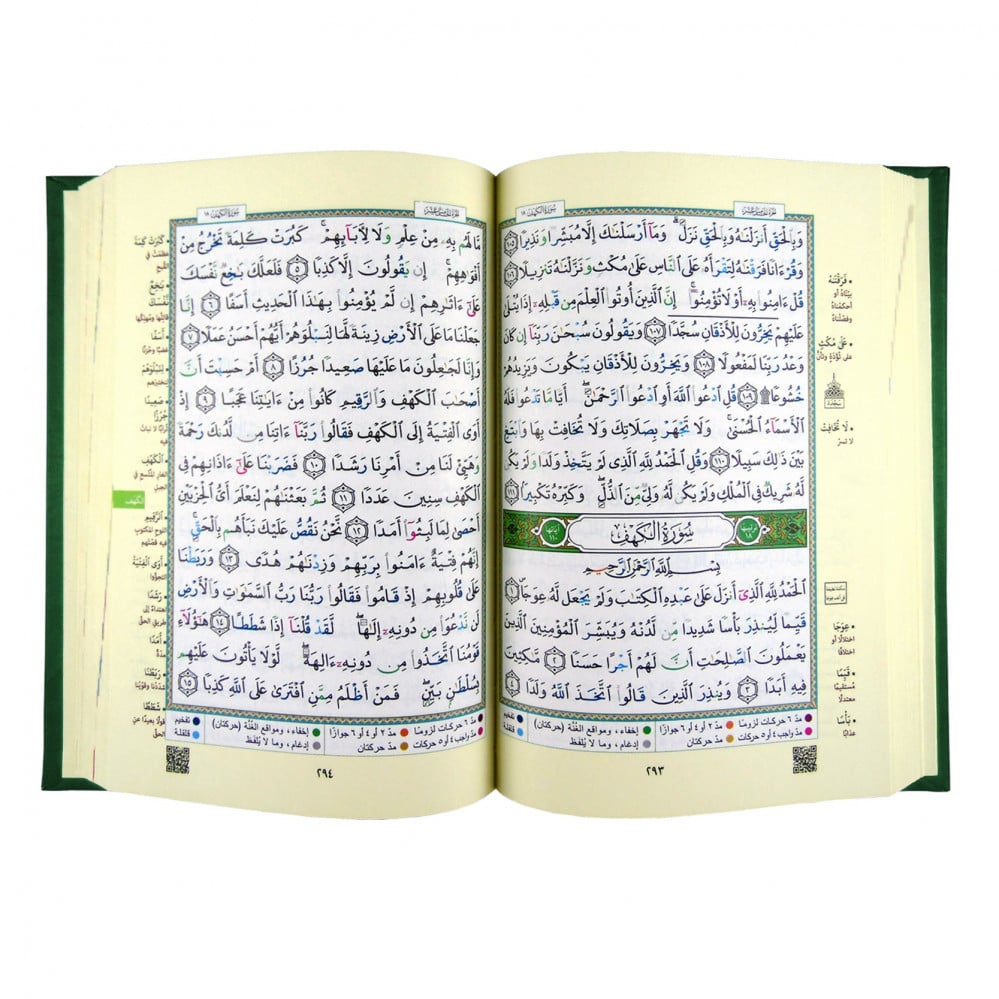 سورة الكهف ١٨
الجزء الخامس عشر
وَبِٱلْحَقِّ أَنزَلْنَٰهُ وَبِٱلْحَقِّ نَزَلَ ۗ وَمَآ أَرْسَلْنَٰكَ إِلَّا مُبَشِّرًا وَنَذِيرًا ١٠٥
وَقُرْءَانًا فَرَقْنَٰهُ لِتَقْرَأَهُۥ عَلَى ٱلنَّاسِ عَلَىٰ مُكْثٍ وَنَزَّلْنَٰهُ تَنزِيلًا ١٠٦
قُلْ ءَامِنُوا۟ بِهِۦٓ أَوْ لَا تُؤْمِنُوٓا۟ ۚ إِنَّ ٱلَّذِينَ أُوتُوا۟ ٱلْعِلْمَ مِن قَبْلِهِۦٓ إِذَا يُتْلَىٰ
عَلَيْهِمْ يَخِرُّونَ لِلْأَذْقَانِ سُجَّدًا ١٠٧ وَيَقُولُونَ سُبْحَٰنَ رَبِّنَآ إِن كَانَ
وَعْدُ رَبِّنَا لَمَفْعُولًا ١٠٨ وَيَخِرُّونَ لِلْأَذْقَانِ يَبْكُونَ وَيَزِيدُهُمْ
خُشُوعًا ۩ ١٠٩ قُلِ ٱدْعُوا۟ ٱللَّهَ أَوِ ٱدْعُوا۟ ٱلرَّحْمَٰنَ ۖ أَيًّا مَّا تَدْعُوا۟ فَلَهُ
ٱلْأَسْمَآءُ ٱلْحُسْنَىٰ ۚ وَلَا تَجْهَرْ بِصَلَاتِكَ وَلَا تُخَافِتْ بِهَا وَٱبْتَغِ
بَيْنَ ذَٰلِكَ سَبِيلًا ١١٠ وَقُلِ ٱلْحَمْدُ لِلَّهِ ٱلَّذِى لَمْ يَتَّخِذْ وَلَدًا وَلَمْ يَكُن
لَّهُۥ شَرِيكٌ فِى ٱلْمُلْكِ وَلَمْ يَكُن لَّهُۥ وَلِىٌّ مِّنَ ٱلذُّلِّ ۖ وَكَبِّرْهُ تَكْبِيرًۢا ١١١
ترتيبها ١٨ سُورَةُ الكَهْفِ آياتها ١١٠
بِسْمِ ٱللَّهِ ٱلرَّحْمَٰنِ ٱلرَّحِيمِ
ٱلْحَمْدُ لِلَّهِ ٱلَّذِىٓ أَنزَلَ عَلَىٰ عَبْدِهِ ٱلْكِتَٰبَ وَلَمْ يَجْعَل لَّهُۥ عِوَجَا ۜ ١
قَيِّمًا لِّيُنذِرَ بَأْسًا شَدِيدًا مِّن لَّدُنْهُ وَيُبَشِّرَ ٱلْمُؤْمِنِينَ ٱلَّذِينَ
يَعْمَلُونَ ٱلصَّٰلِحَٰتِ أَنَّ لَهُمْ أَجْرًا حَسَنًا ٢ مَّٰكِثِينَ
فِيهِ أَبَدًا ٣ وَيُنذِرَ ٱلَّذِينَ قَالُوا۟ ٱتَّخَذَ ٱللَّهُ وَلَدًا ٤
• فَرَقْنَاهُ
بيّنّاه أو
أحكمناه
وفصّلناه
• عَلَى مُكْثٍ
على تُؤَدَةٍ وتَأنٍّ
سجدة
• لَا تُخَافِتْ
لا تسرّ
• عِوَجًا
اختلالًا أو
اختلافًا
• قَيِّمًا
مستقيمًا
معتدلًا
• بَأْسًا
عذابًا
مدّ ٦ حركات لزومًا
مدّ ٢ أو ٤ أو ٦ جوازًا
إخفاء، ومواقع الغُنَّة (حركتان)
تفخيم
مدّ واجب ٤ أو ٥ حركات
مدّ حركتان
إدغام، وما لا يُلفَظ
قلقلة
٢٩٣
سورة الكهف ١٨
الجزء الخامس عشر
مَّا لَهُم بِهِۦ مِنْ عِلْمٍ وَلَا لِـَٔابَآئِهِمْ ۚ كَبُرَتْ كَلِمَةً تَخْرُجُ مِنْ
أَفْوَٰهِهِمْ ۚ إِن يَقُولُونَ إِلَّا كَذِبًا ٥ فَلَعَلَّكَ بَٰخِعٌ نَّفْسَكَ
عَلَىٰٓ ءَاثَٰرِهِمْ إِن لَّمْ يُؤْمِنُوا۟ بِهَٰذَا ٱلْحَدِيثِ أَسَفًا ٦ إِنَّا
جَعَلْنَا مَا عَلَى ٱلْأَرْضِ زِينَةً لَّهَا لِنَبْلُوَهُمْ أَيُّهُمْ أَحْسَنُ عَمَلًا ٧
وَإِنَّا لَجَٰعِلُونَ مَا عَلَيْهَا صَعِيدًا جُرُزًا ٨ أَمْ حَسِبْتَ أَنَّ
أَصْحَٰبَ ٱلْكَهْفِ وَٱلرَّقِيمِ كَانُوا۟ مِنْ ءَايَٰتِنَا عَجَبًا ٩ إِذْ
أَوَى ٱلْفِتْيَةُ إِلَى ٱلْكَهْفِ فَقَالُوا۟ رَبَّنَآ ءَاتِنَا مِن لَّدُنكَ رَحْمَةً
وَهَيِّئْ لَنَا مِنْ أَمْرِنَا رَشَدًا ١٠ فَضَرَبْنَا عَلَىٰٓ ءَاذَانِهِمْ فِى
ٱلْكَهْفِ سِنِينَ عَدَدًا ١١ ثُمَّ بَعَثْنَٰهُمْ لِنَعْلَمَ أَىُّ ٱلْحِزْبَيْنِ
أَحْصَىٰ لِمَا لَبِثُوٓا۟ أَمَدًا ١٢ نَّحْنُ نَقُصُّ عَلَيْكَ نَبَأَهُم بِٱلْحَقِّ ۚ
إِنَّهُمْ فِتْيَةٌ ءَامَنُوا۟ بِرَبِّهِمْ وَزِدْنَٰهُمْ هُدًى ١٣ وَرَبَطْنَا
عَلَىٰ قُلُوبِهِمْ إِذْ قَامُوا۟ فَقَالُوا۟ رَبُّنَا رَبُّ ٱلسَّمَٰوَٰتِ وَٱلْأَرْضِ
لَن نَّدْعُوَا۟ مِن دُونِهِۦٓ إِلَٰهًا ۖ لَّقَدْ قُلْنَآ إِذًا شَطَطًا ١٤ هَٰٓؤُلَآءِ
قَوْمُنَا ٱتَّخَذُوا۟ مِن دُونِهِۦٓ ءَالِهَةً ۖ لَّوْلَا يَأْتُونَ عَلَيْهِم
بِسُلْطَٰنٍۭ بَيِّنٍ ۖ فَمَنْ أَظْلَمُ مِمَّنِ ٱفْتَرَىٰ عَلَى ٱللَّهِ كَذِبًا ١٥
• كَبُرَتْ كَلِمَةً
• أَسَفًا
• صَعِيدًا
جُرُزًا
الكهف
• الرَّقِيمِ
• أَوَى الْفِتْيَةُ
التجؤوا
• رَشَدًا
اهتداءً إلى
طريق الحقّ
• أَمَدًا
مدّةً
• رَبَطْنَا
شددنا وقوّينا
• شَطَطًا
قولًا بعيدًا عن
الحقّ
مدّ ٦ حركات لزومًا
مدّ ٢ أو ٤ أو ٦ جوازًا
إخفاء، ومواقع الغُنَّة (حركتان)
تفخيم
مدّ واجب ٤ أو ٥ حركات
مدّ حركتان
إدغام، وما لا يُلفَظ
قلقلة
٢٩٤